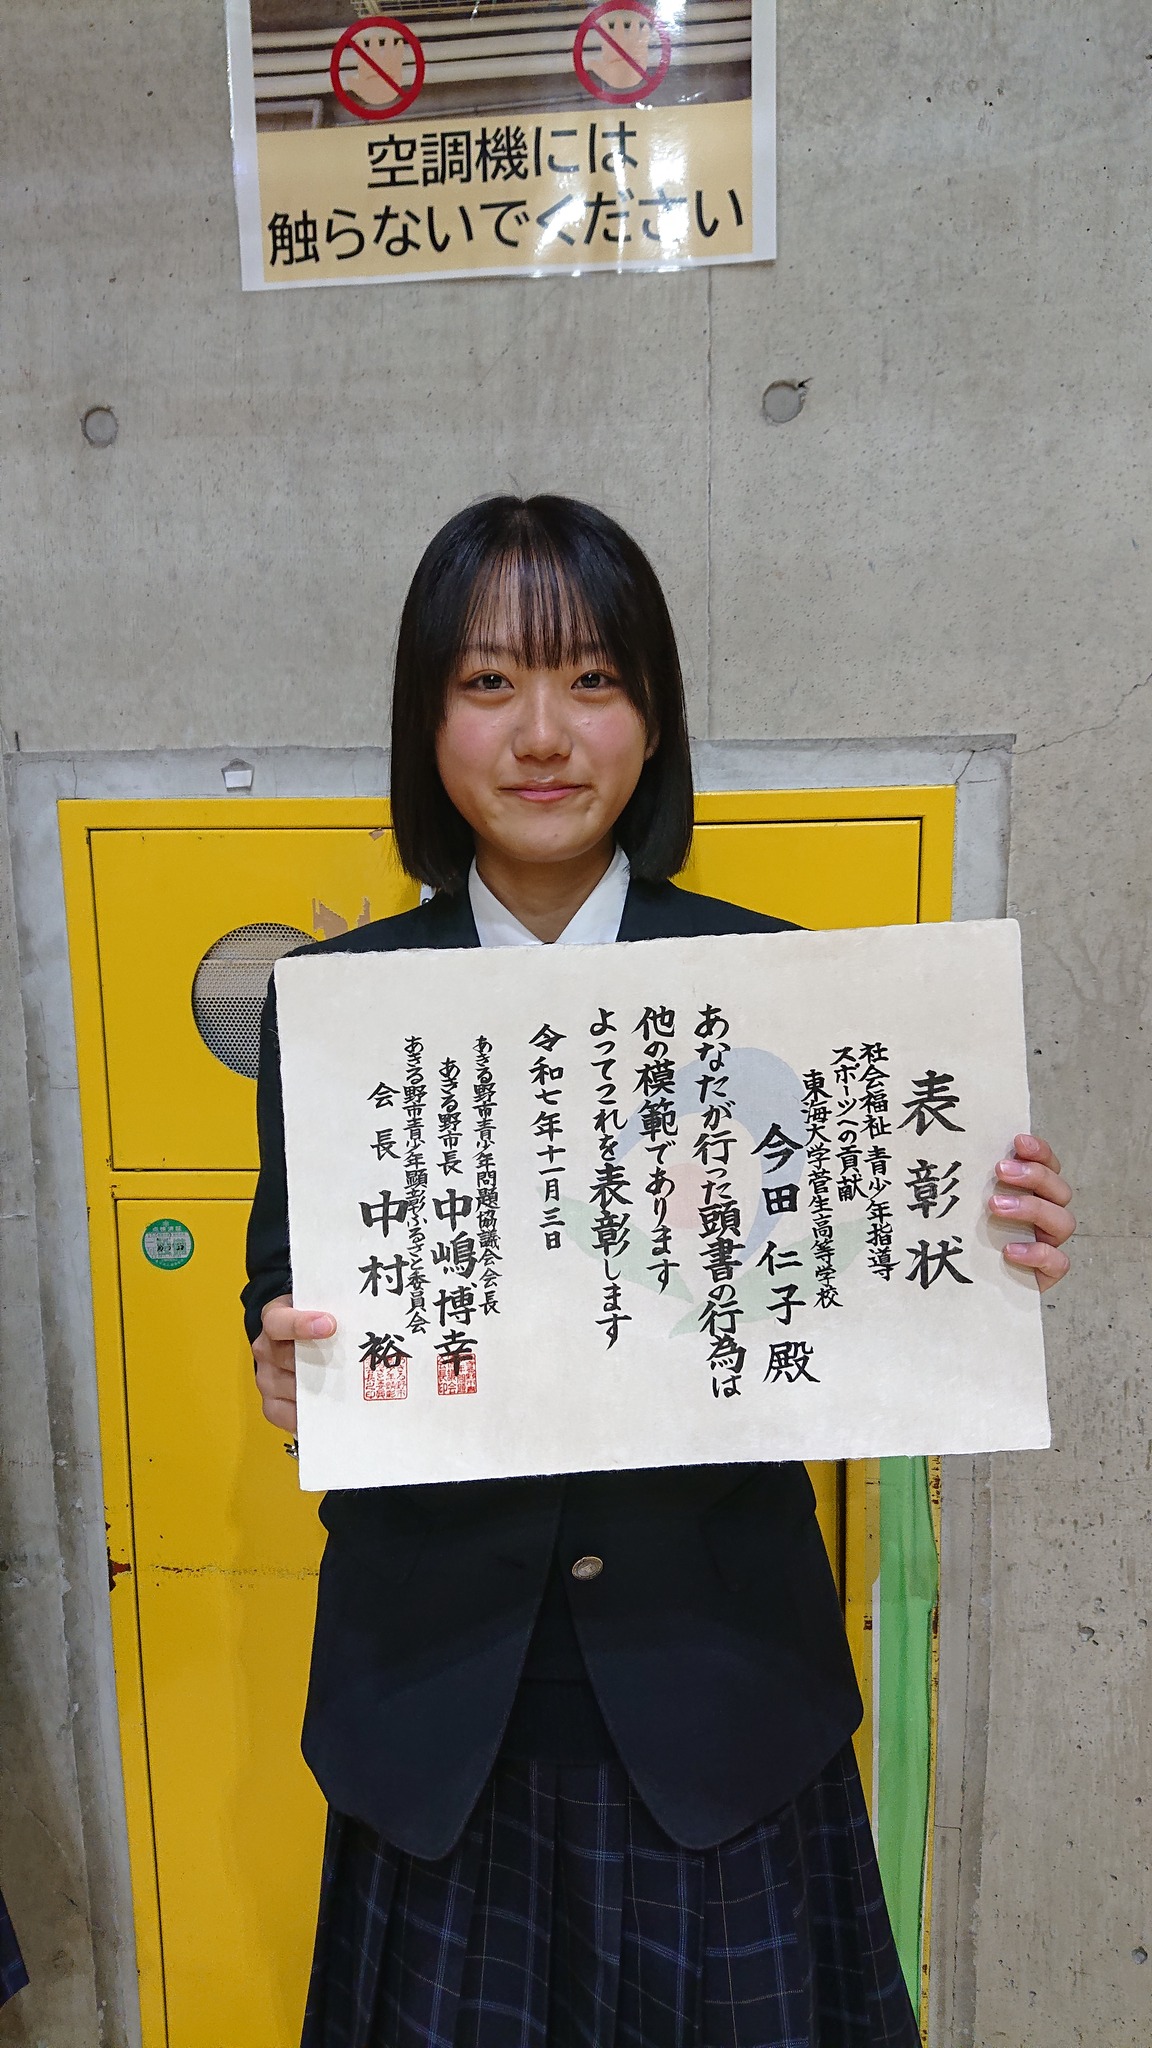 空調機には
触らないでください
表彰状
社会福祉 青少年指導
スポーツへの貢献
東海大学菅生高等学校
今田仁子殿
あなたが行った頭書の行為は
他の模範であります
よってこれを表彰します
令和七年十一月三日
あきる野市青少年問題協議会会長
あきる野市長 中嶋博幸
あきる野市青少年顕彰ふるさと委員会
会長 中村裕